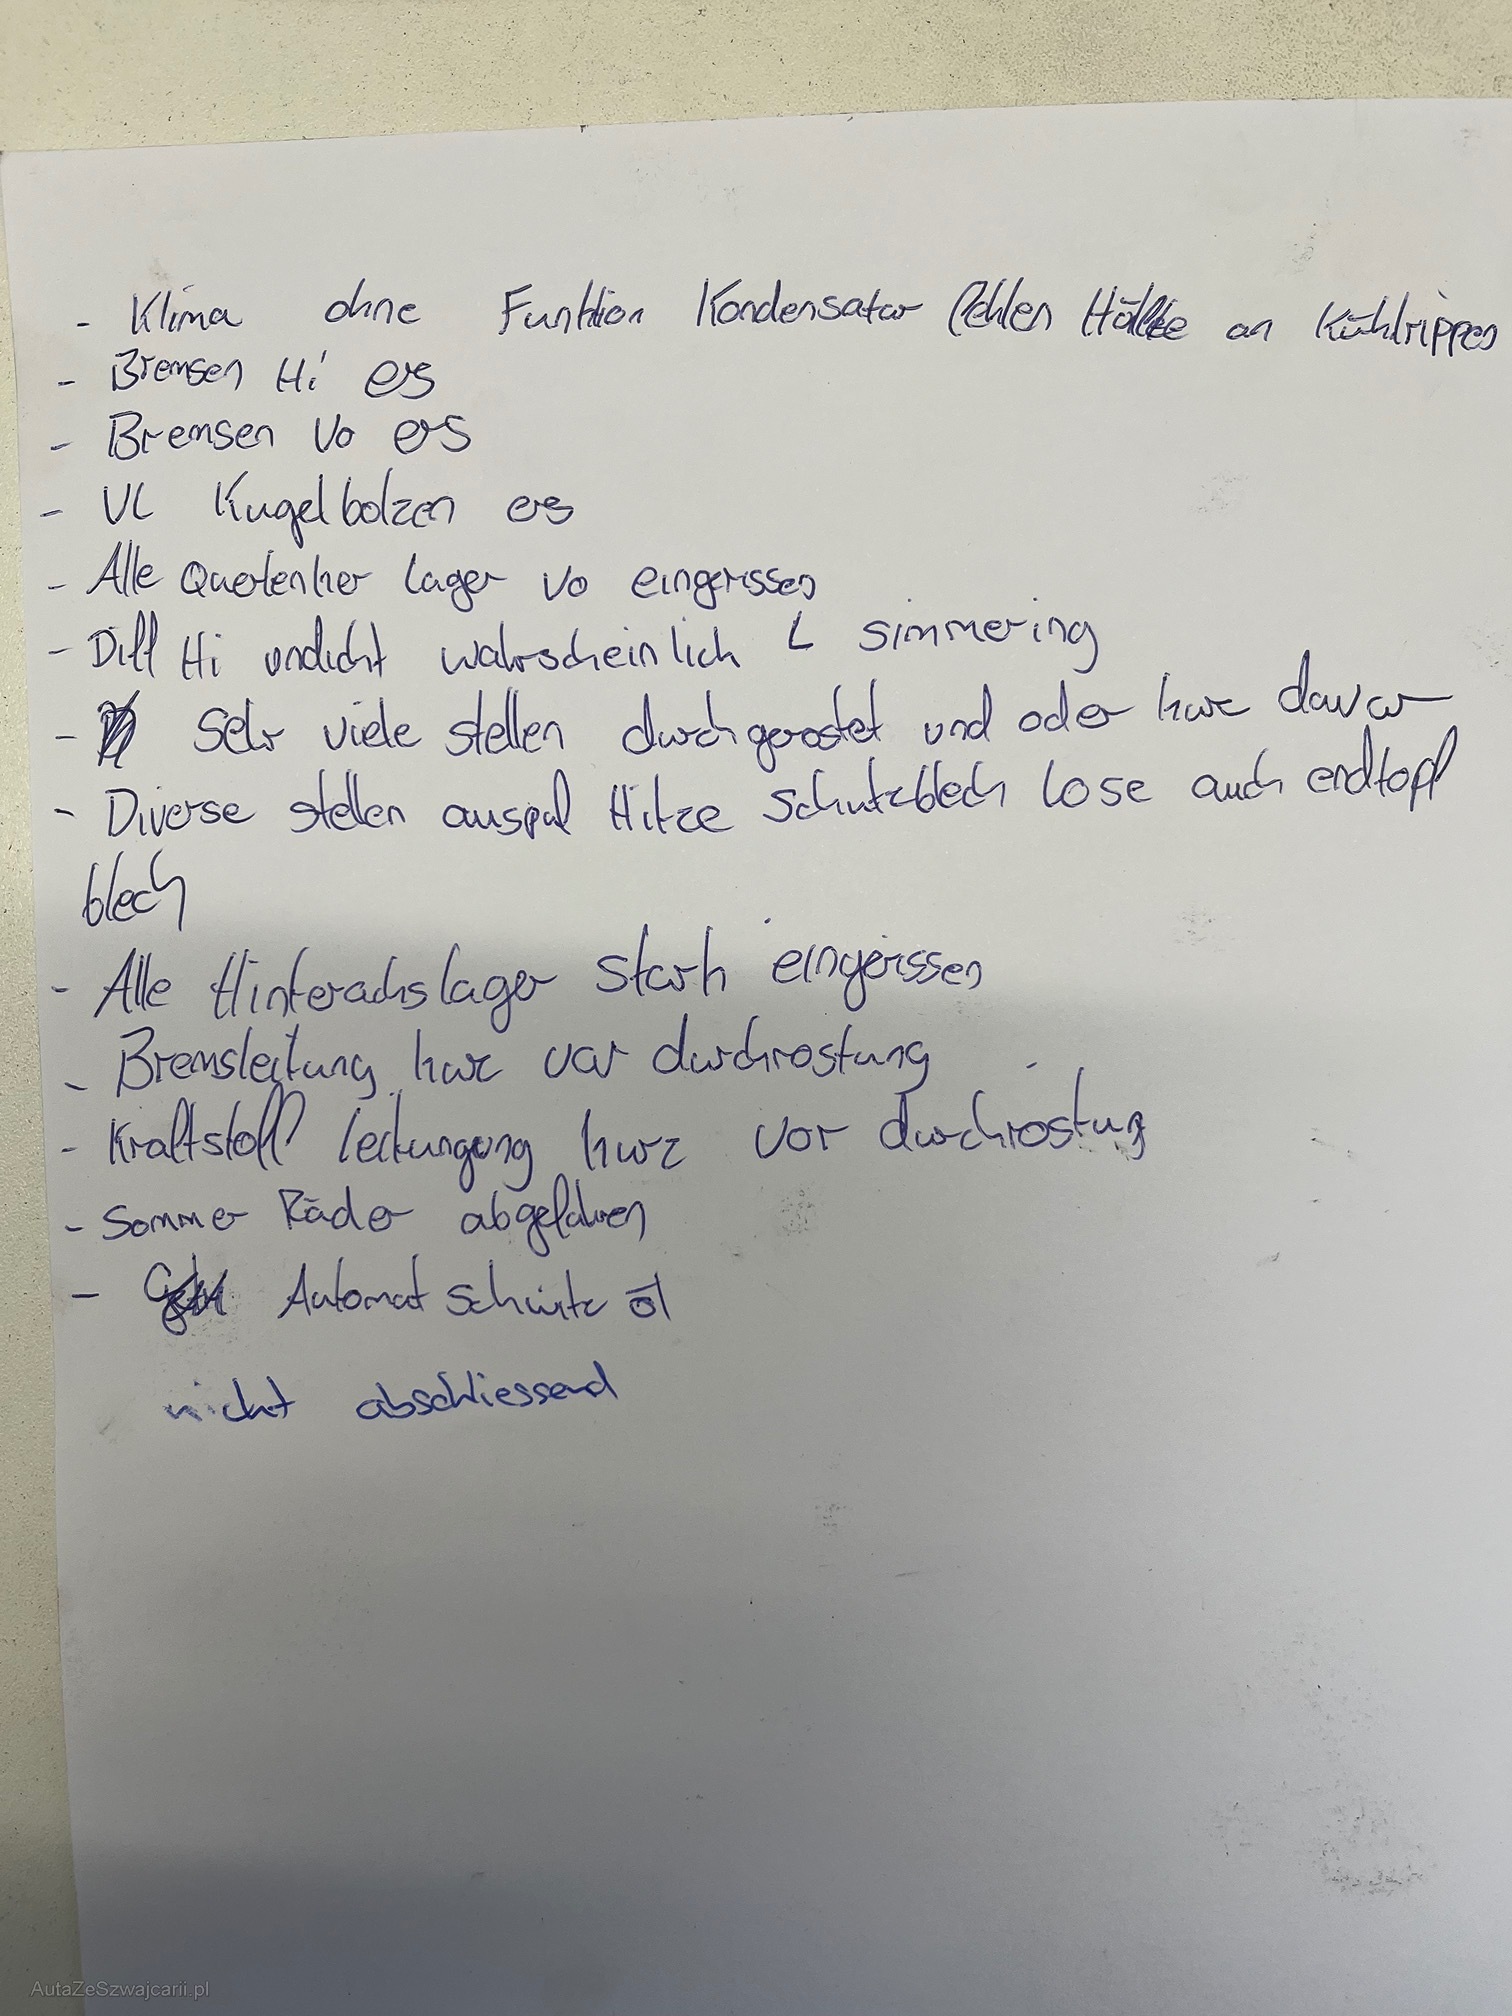 - Klima ohne Funktion Kondensator fehlen Hälfte an Kühlrippen
- Bremsen Hi ers
- Bremsen Vo ers
- VL Kugelbolzen ers
- Alle Querlenker lager vo eingerissen
- Diff Hi undicht wahrscheinlich L simmering
- Sehr viele stellen durchgerostet und oder kurz davor
- Diverse stellen auspuf Hitze Schutzblech Lose auch endtopf
blech
- Alle Hinterachslager stark eingerissen
- Bremsleitung kurz vor durchrostung
- Kraftstoff leitungung kurz vor durchrostung
- Sommer Räder abgefahren
- Automat schwitz öl
nicht abschliessend
AutaZeSzwajcarii.pl